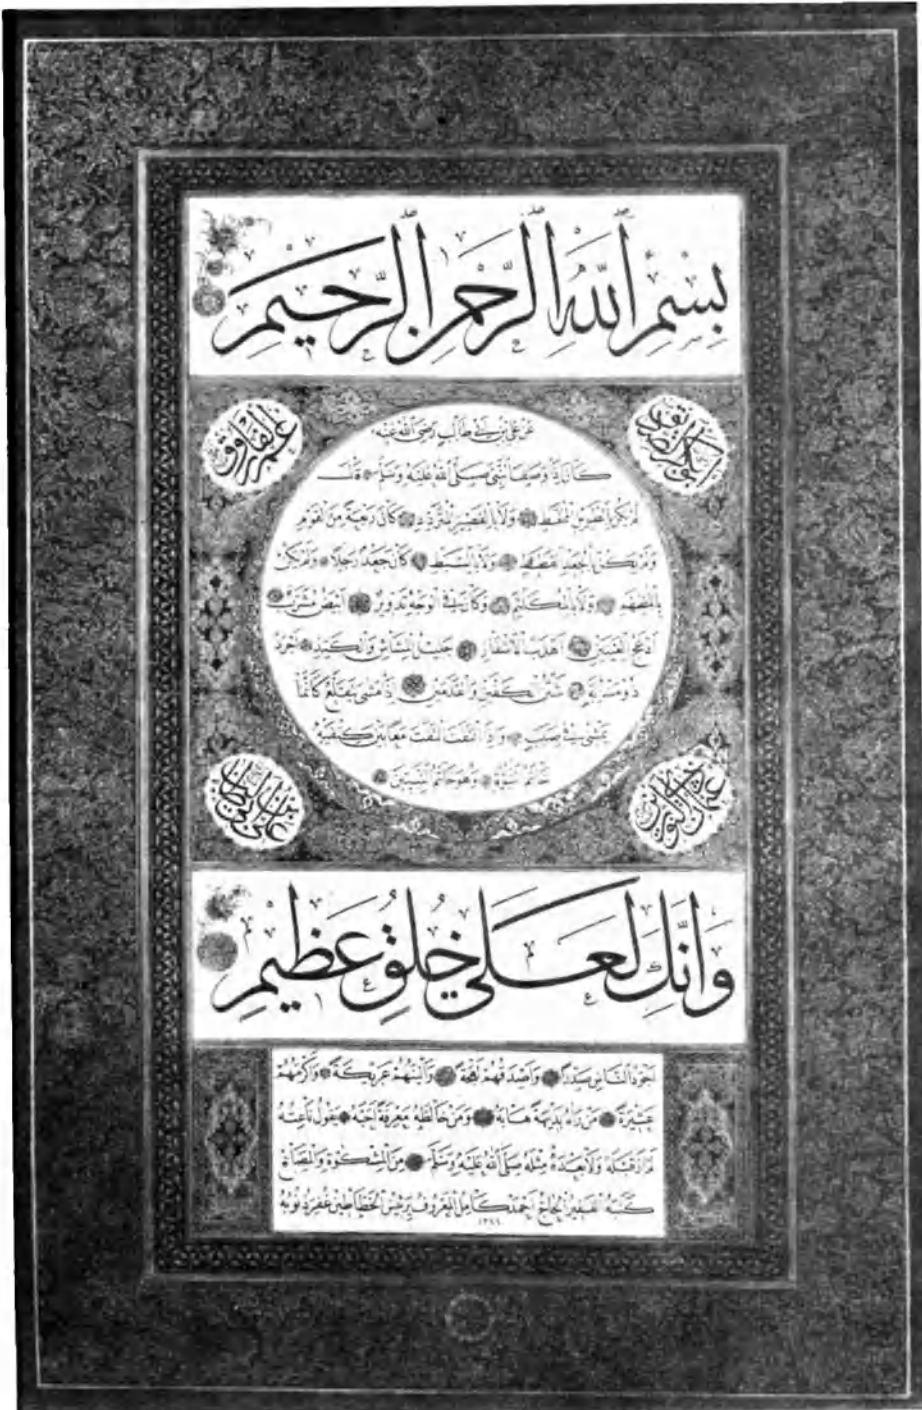 بِسْمِ اللهِ الرَّحْمٰنِ الرَّحِيْمِ
عَنْ عَلِيِّ بْنِ أَبِي طَالِبٍ رَضِيَ اللهُ عَنْهُ
كَانَ إِذَا وَصَفَ النَّبِيَّ صَلَّى اللهُ عَلَيْهِ وَسَلَّمَ قَالَ
لَمْ يَكُنْ بِالطَّوِيلِ الْمُمَّغِطِ وَلَا بِالْقَصِيرِ الْمُتَرَدِّدِ كَانَ رَبْعَةً مِنَ الْقَوْمِ
وَلَمْ يَكُنْ بِالْجَعْدِ الْقَطَطِ وَلَا بِالسَّبِطِ كَانَ جَعْدًا رَجِلًا وَلَمْ يَكُنْ
بِالْمُطَهَّمِ وَلَا بِالْمُكَلْثَمِ وَكَانَ فِي الْوَجْهِ تَدْوِيرٌ أَبْيَضُ مُشْرَبٌ
أَدْعَجُ الْعَيْنَيْنِ أَهْدَبُ الْأَشْفَارِ جَلِيلُ الْمُشَاشِ وَالْكَتِدِ أَجْرَدُ
ذُو مَسْرُبَةٍ شَثْنُ الْكَفَّيْنِ وَالْقَدَمَيْنِ إِذَا مَشَى يَتَقَلَّعُ كَأَنَّمَا
يَمْشِي فِي صَبَبٍ وَإِذَا الْتَفَتَ الْتَفَتَ مَعًا بَيْنَ كَتِفَيْهِ
خَاتَمُ النُّبُوَّةِ وَهُوَ خَاتَمُ النَّبِيِّينَ
عمر الفاروق
عثمان ذي النورين
وَإِنَّكَ لَعَلٰى خُلُقٍ عَظِيْمٍ
أَجْوَدُ النَّاسِ صَدْرًا وَأَصْدَقُهُمْ لَهْجَةً وَأَلْيَنُهُمْ عَرِيكَةً وَأَكْرَمُهُمْ
عَشِيرَةً مَنْ رَآهُ بَدِيهَةً هَابَهُ وَمَنْ خَالَطَهُ مَعْرِفَةً أَحَبَّهُ يَقُولُ نَاعِتُهُ
لَمْ أَرَ قَبْلَهُ وَلَا بَعْدَهُ مِثْلَهُ صَلَّى اللهُ عَلَيْهِ وَسَلَّمَ مِنَ الْمِشْكٰوةِ وَالْمَصَابِيحِ
كَتَبَهُ الْفَقِيرُ الْحَاجُّ أَحْمَدُ كَامِلُ الْمَعْرُوفُ بِرَئِيسِ الْخَطَّاطِينَ غُفِرَ ذُنُوبُهُ